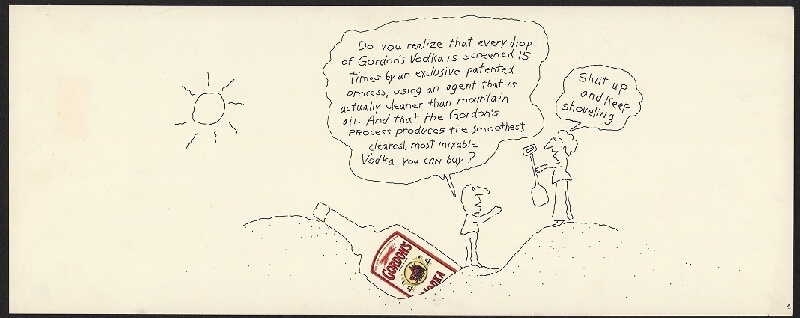 Do you realize that every drop
of Gordon's Vodka is screened 15
times by an exclusive patented
process, using an agent that is
actually cleaner than mountain
air. And that the Gordon's
process produces the smoothest,
clearest, most mixable
Vodka you can buy?
Shut up
and keep
shoveling
GORDON'S
VODKA